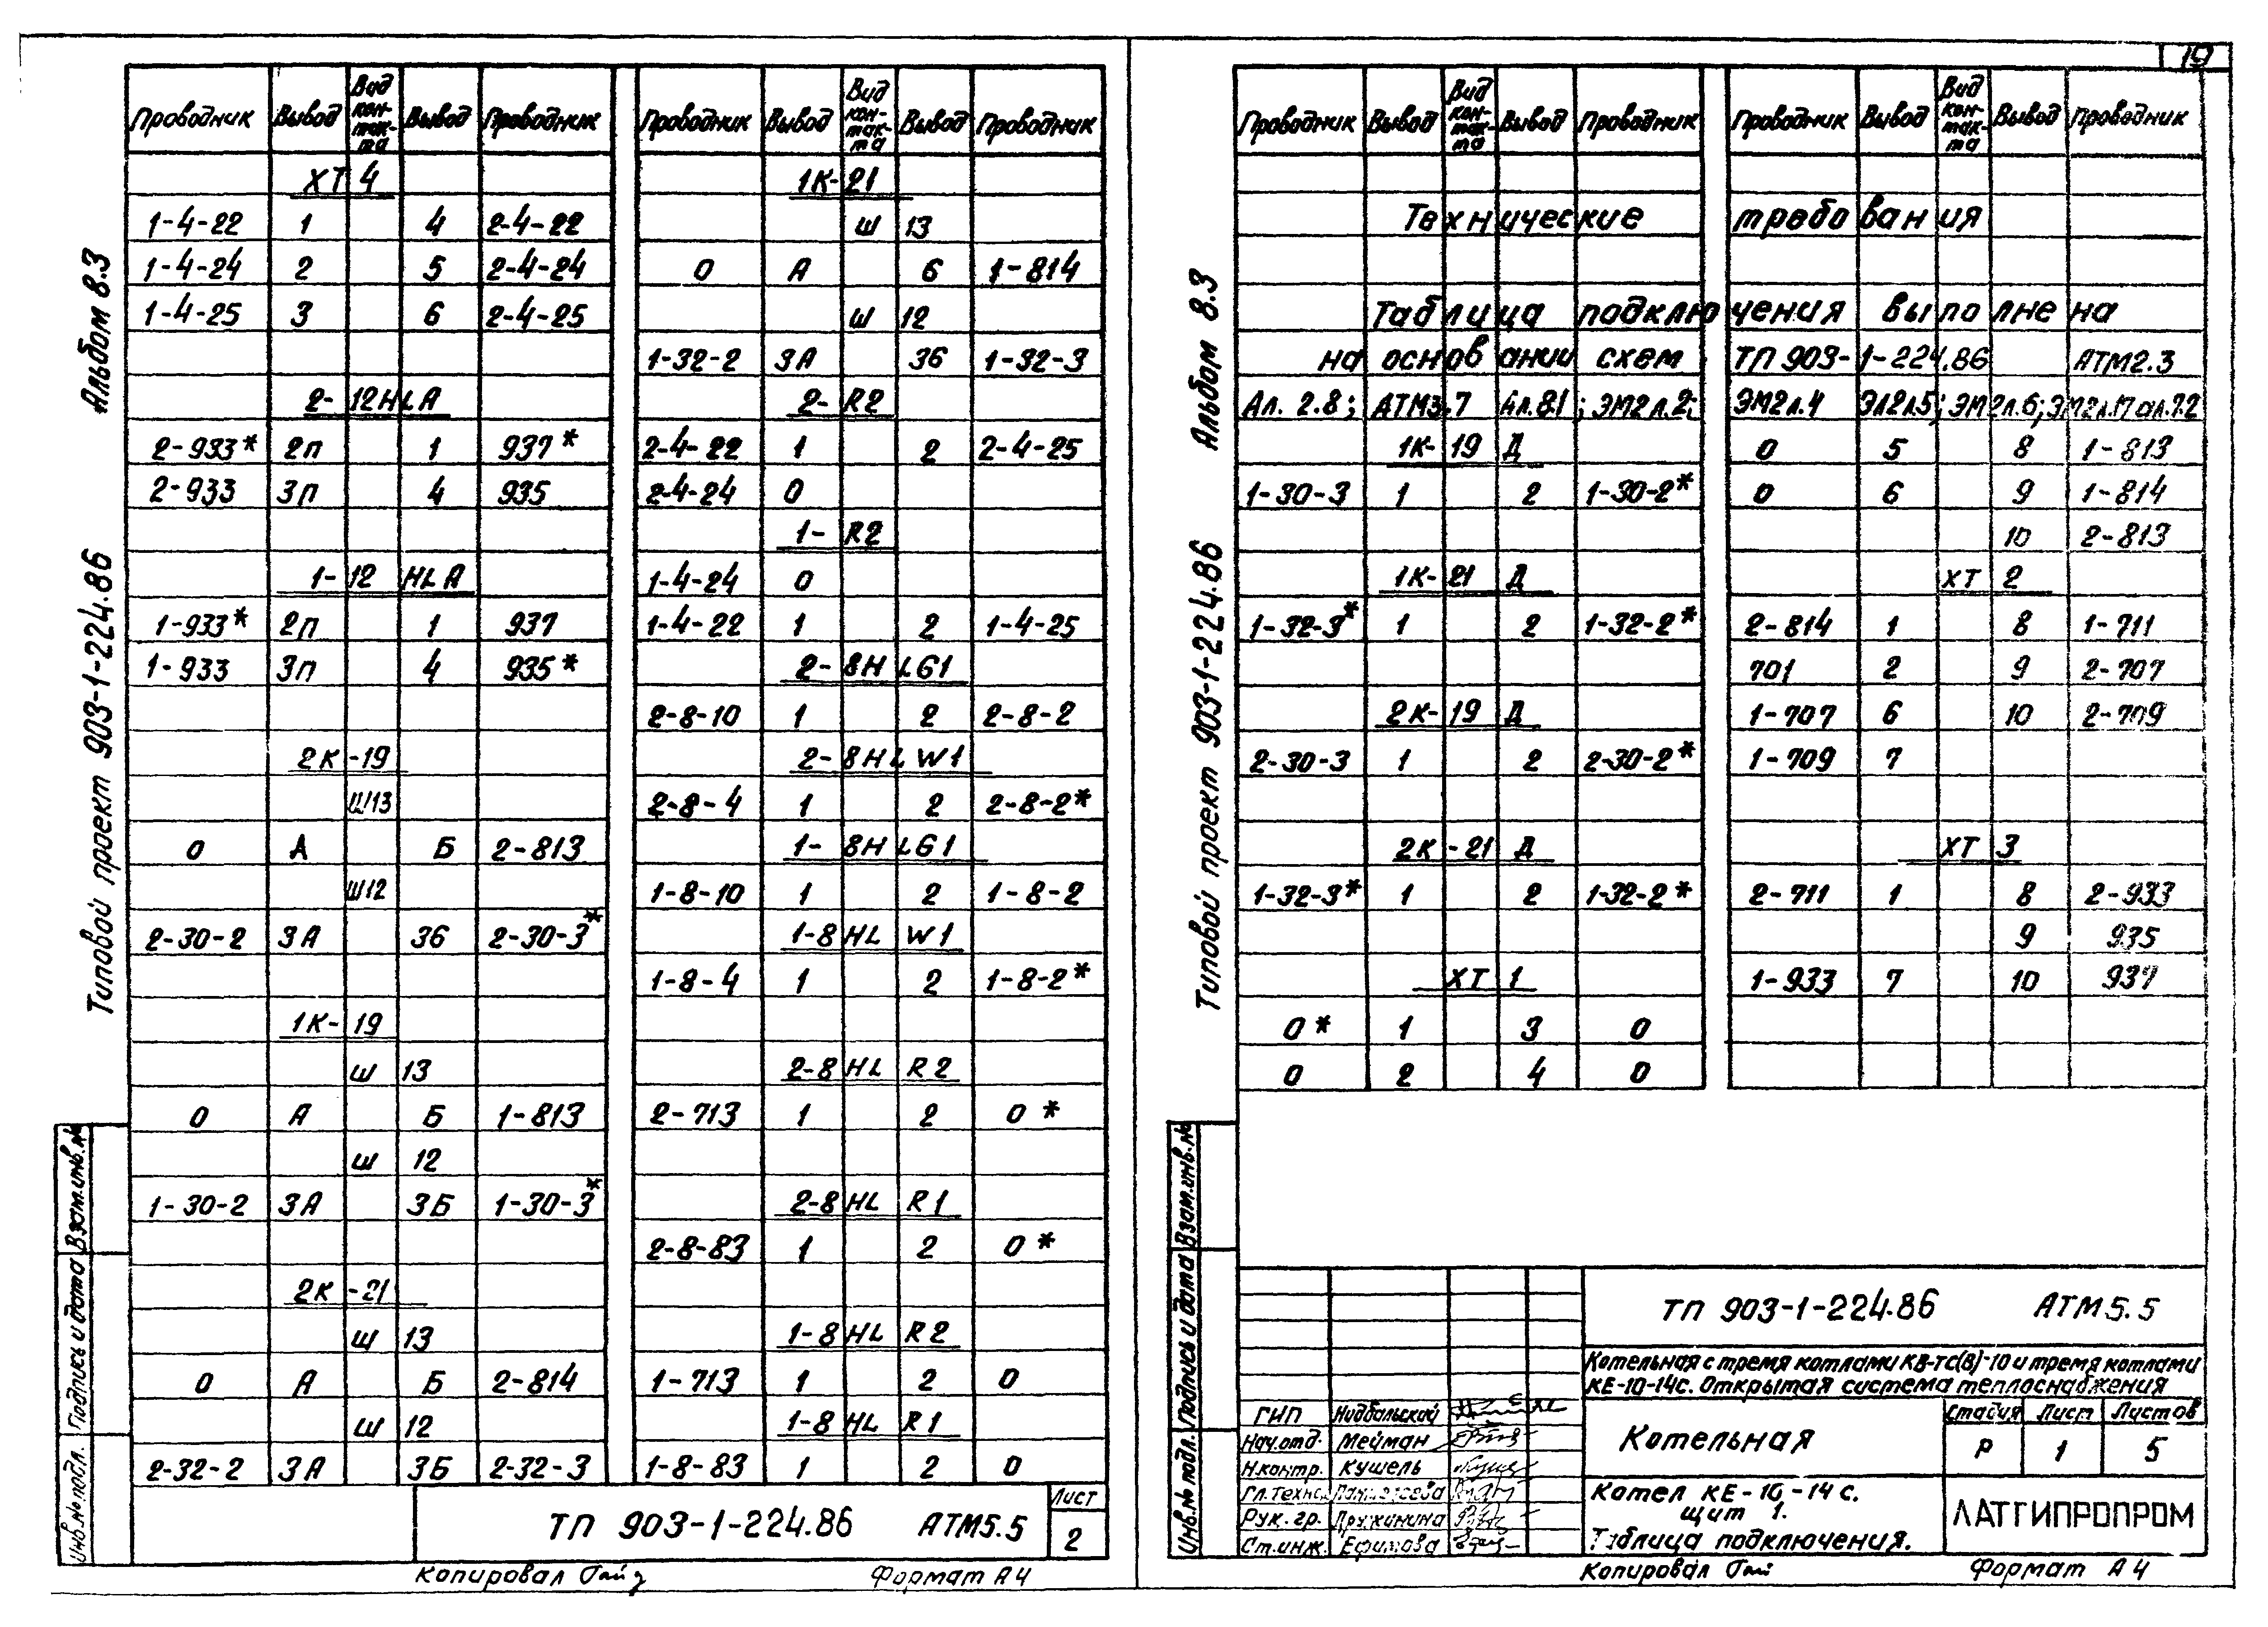 19
Альбом 8.3
Типовой проект 903-1-224.86
Проводник Вывод Вид контакта Вывод Проводник
ХТ 4
1-4-22 1 4 2-4-22
1-4-24 2 5 2-4-24
1-4-25 3 6 2-4-25
2-12HLA
2-933* 2п 1 937*
2-933 3п 4 935
1-12 HLA
1-933* 2п 1 937
1-933 3п 4 935*
2К-19
Ш13
0 А Б 2-813
Ш12
2-30-2 3А 3б 2-30-3*
1К-19
Ш 13
0 А Б 1-813
Ш 12
1-30-2 3А 3Б 1-30-3*
2К-21
Ш 13
0 А Б 2-814
Ш 12
2-32-2 3А 3Б 2-32-3
Проводник Вывод Вид контакта Вывод Проводник
1К-21
Ш 13
0 А б 1-814
Ш 12
1-32-2 3А 3б 1-32-3
2-R2
2-4-22 1 2 2-4-25
2-4-24 0
1-R2
1-4-24 0
1-4-22 1 2 1-4-25
2-8HLG1
2-8-10 1 2 2-8-2
2-8HLW1
2-8-4 1 2 2-8-2*
1-8HLG1
1-8-10 1 2 1-8-2
1-8HL W1
1-8-4 1 2 1-8-2*
2-8HL R2
2-713 1 2 0*
2-8HL R1
2-8-83 1 2 0*
1-8HL R2
1-713 1 2 0
1-8HL R1
1-8-83 1 2 0
Взам.инв.№
Подпись и дата
Инв.№ подл.
ТП 903-1-224.86 АТМ5.5
Лист
2
Копировал
Формат А4
Альбом 8.3
Типовой проект 903-1-224.86
Проводник Вывод Вид контакта Вывод Проводник
Проводник Вывод Вид контакта Вывод Проводник
Технические требования
Таблица подключения выполнена
на основании схем ТП 903-1-224.86 АТМ2.3
Ал. 2.8; АТМ3.7 Ал.8.1; ЭМ2л.2; ЭМ2л.4 ЭЛ2л.5; ЭМ2л.6; ЭМ2л.17 ал.7.2
1К-19 Д
1-30-3 1 2 1-30-2*
1К-21 Д
1-32-3* 1 2 1-32-2*
2К-19 Д
2-30-3 1 2 2-30-2*
2К-21 Д
1-32-3* 1 2 1-32-2*
ХТ 1
0* 1 3 0
0 2 4 0
0 5 8 1-813
0 6 9 1-814
10 2-813
ХТ 2
2-814 1 8 1-711
701 2 9 2-707
1-707 6 10 2-709
1-709 7
ХТ 3
2-711 1 8 2-933
9 935
1-933 7 10 937
Взам.инв.№
Подпись и дата
Инв.№ подл.
ТП 903-1-224.86 АТМ5.5
Котельная с тремя котлами КВ-ТС(В)-10 и тремя котлами
КЕ-10-14с. Открытая система теплоснабжения
ГИП Нидбальский
Нач.отд. Мейман
Н.контр. Кушель
Гл.техно.
Рук. гр. Дружинина
Ст.инж. Ефимова
Котельная
Стадия Лист Листов
Р 1 5
Котел КЕ-10-14 с.
щит 1.
Таблица подключения.
ЛАТГИПРОПРОМ
Копировал
Формат А4